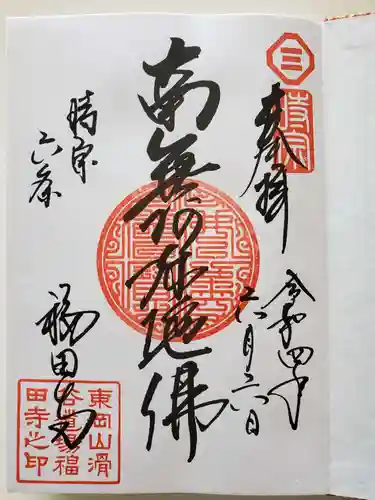 奉拝
令和四年
六月六日
南無阿弥陀佛
時宗
六条
福田寺
東岡山滑
谷道場福
田寺之印
三
時宗